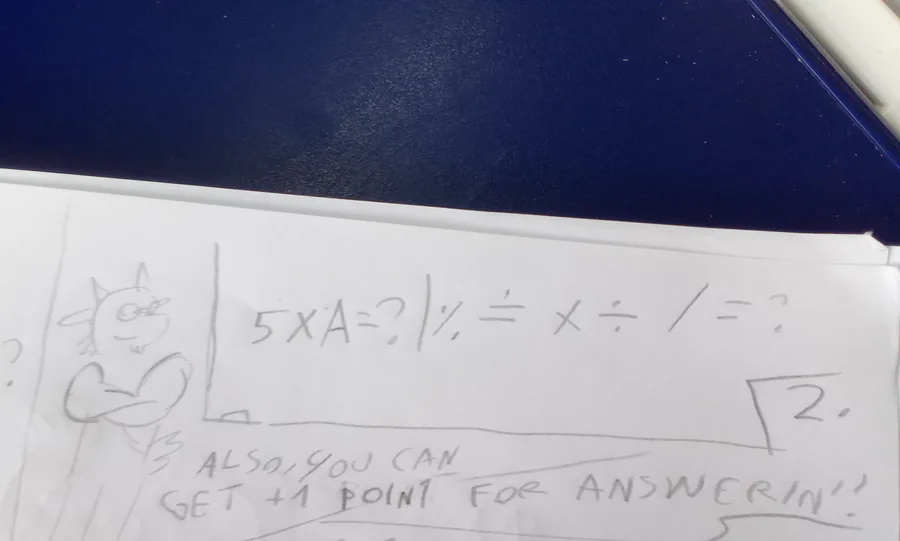 ?
5XA=? | % ÷ x ÷ / = ?
2.
ALSO, YOU CAN
GET +1 POINT FOR ANSWERIN''